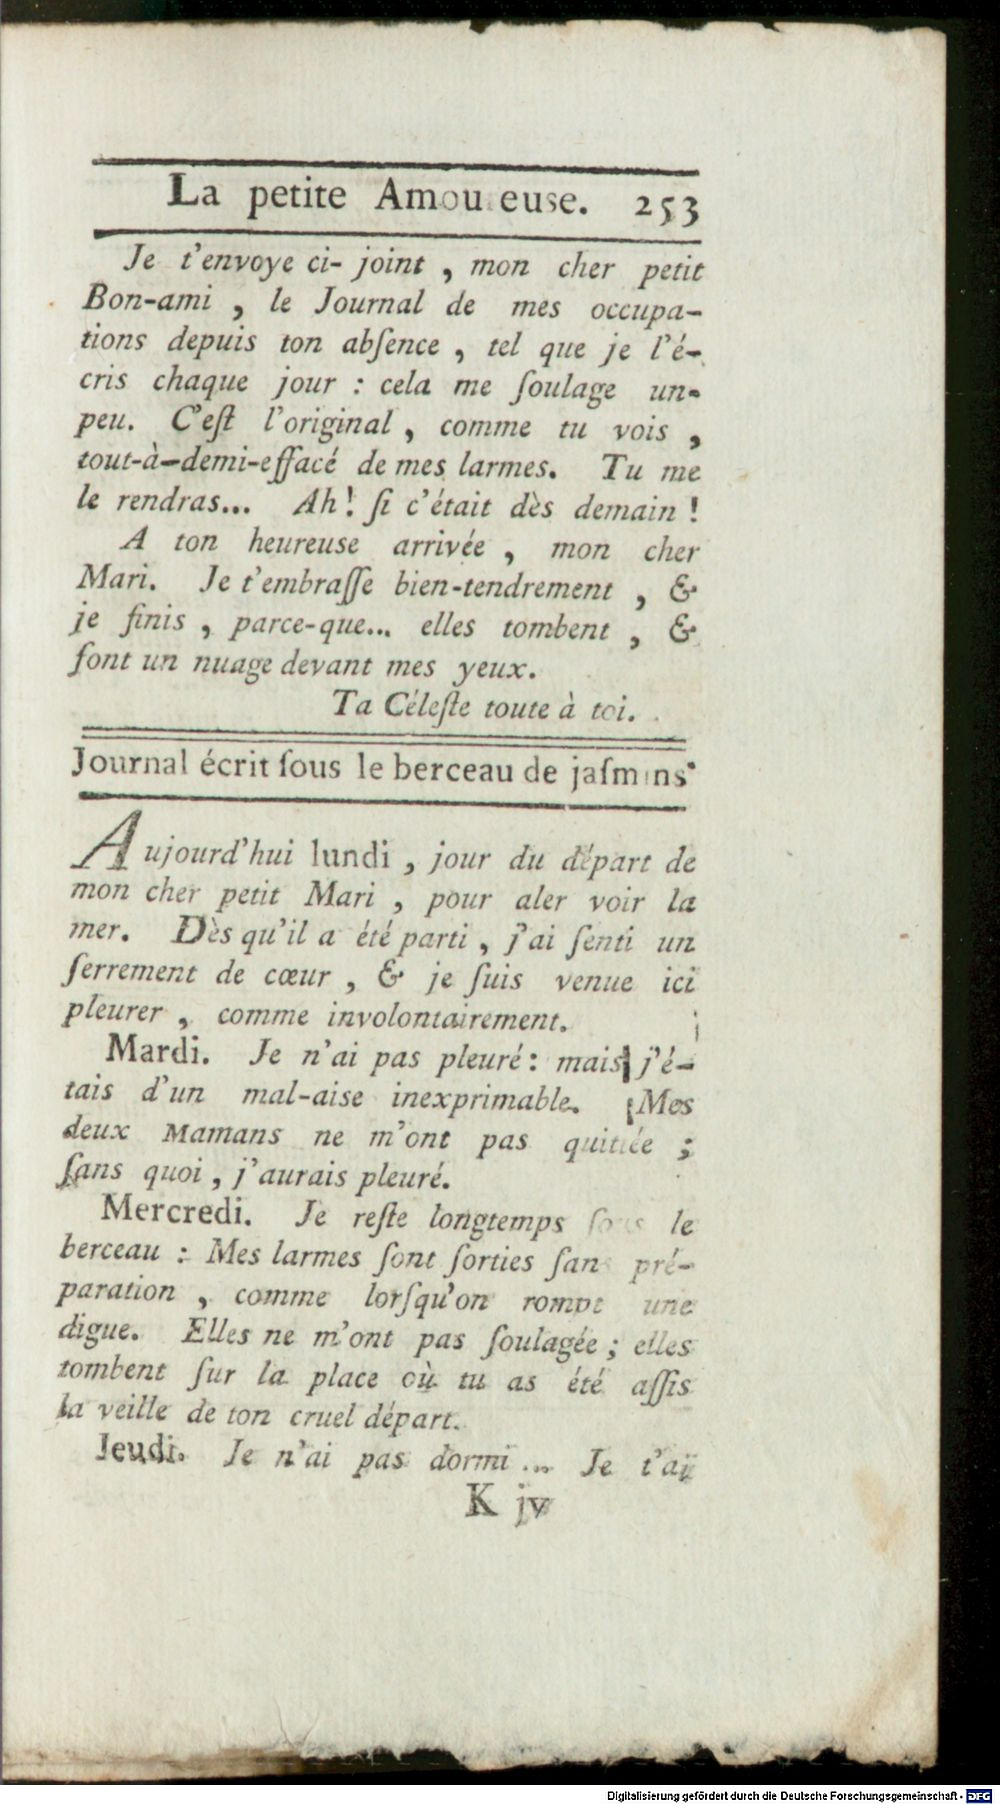 La petite Amou euse. 253
Je t'envoye ci-joint, mon cher petit
Bon-ami, le Journal de mes occupa-
tions depuis ton abſence, tel que je l'é-
cris chaque jour : cela me ſoulage un-
peu. C'eſt l'original, comme tu vois,
tout-à-demi-effacé de mes larmes. Tu me
le rendras... Ah! ſi c'était dès demain!
A ton heureuse arrivée, mon cher
Mari. Je t'embraſſe bien-tendrement, &
je finis, parce-que... elles tombent, &
font un nuage devant mes yeux.
Ta Céleſte toute à toi.
Journal écrit ſous le berceau de jaſmins
Aujourd'hui lundi, jour du départ de
mon cher petit Mari, pour aler voir la
mer. Dès qu'il a été parti, j'ai ſenti un
ſerrement de cœur, & je ſuis venue ici
pleurer, comme involontairement.
Mardi. Je n'ai pas pleuré : mais j'é-
tais d'un mal-aise inexprimable. Mes
deux Mamans ne m'ont pas quittée ;
ſans quoi, j'aurais pleuré.
Mercredi. Je reſte longtemps ſous le
berceau : Mes larmes ſont ſorties ſans pré-
paration, comme lorſqu'on rompt une
digue. Elles ne m'ont pas ſoulagée ; elles
tombent ſur la place où tu as été aſſis
la veille de ton cruel départ.
Jeudi. Je n'ai pas dormi... Je t'ai
K jv
Digitalisierung gefördert durch die Deutsche Forschungsgemeinschaft - DFG